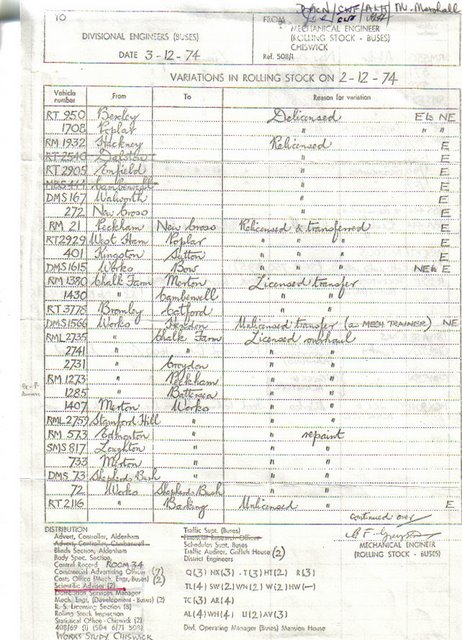 TO
FROM
Mr. Marshall
DIVISIONAL ENGINEERS (BUSES)
MECHANICAL ENGINEER
(ROLLING STOCK - BUSES)
CHISWICK
DATE 3-12-74
Ref. 508/1
VARIATIONS IN ROLLING STOCK ON 2-12-74
Vehicle number From To Reason for variation
RT 950 Bexley Delicensed E to NE
1708 Poplar " " "
RM 1932 Hackney Relicensed E
RT 2540 Dalston " E
RT 2905 Enfield " E
Camberwell "
DMS 167 Walworth " E
272 New Cross " E
RM 21 Peckham New Cross Relicensed & transferred E
RT 2929 West Ham Poplar " " " E
401 Kingston Sutton " " " E
DMS 1615 Works Bow " " " NE to E
RM 1380 Chalk Farm Merton Licensed transfer
1430 " Camberwell " "
RT 3778 Bromley Catford " "
DMS 1566 Works Unlicensed transfer (as MECH TRAINER) NE
RML 2735 " Chalk Farm Licensed overhaul
2741 " " " "
2731 " Croydon " "
RM 1273 " Peckham " "
1285 " Battersea " "
1407 Merton Works " "
RML 2759 Stamford Hill " " "
RM 573 Edmonton " " repaint
SMS 817 Loughton " " "
733 Merton " " "
DMS 73 Shepherds Bush " " "
72 Works Shepherds Bush " "
RT 2116 " Barking Unlicensed " E
continued over
MECHANICAL ENGINEER
(ROLLING STOCK - BUSES)
DISTRIBUTION
Advert. Controller, Aldenham
Blinds Section, Aldenham
Body Spec. Section
Central Record ROOM 34
Commercial Advertising Officer (7)
Costs Office (Mech. Engr. Buses) (2)
Scientific Adviser (2)
Distribution Services Manager
Mech. Engr. (Development - Buses) (2)
R. S. Licensing Section (8)
Rolling Stock Inspection
Statistical Office - Chiswick (2)
WORKS STUDY CHISWICK
Traffic Supt. (Buses)
Financial Research Officer
Schedules Supt. Buses
Traffic Auditor, Griffith House (2)
District Engineers
Q (3) NX (3) T (3) HT (2) R (3)
TL (4) SW (2) WN (2) W (2) HW (-)
TC (3) AR (4)
AL (4) WH (4) U (2) AV (3)
Divl. Operating Manager (Buses) Mansion House